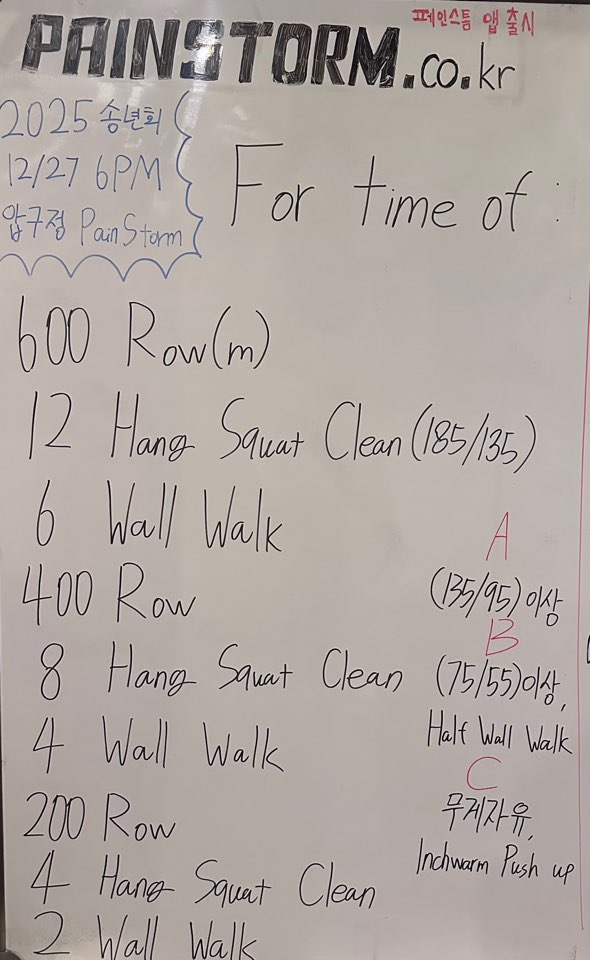 페인스톰 앱 출시
PAINSTORM.co.kr
2025 송년회
12/27 6PM
압구정 PainStorm
For time of :
600 Row(m)
12 Hang Squat Clean (185/135)
6 Wall Walk
400 Row
8 Hang Squat Clean
4 Wall Walk
200 Row
4 Hang Squat Clean
2 Wall Walk
A
(135/95) 이상
B
(75/55)이상,
Half Wall Walk
C
무게자유,
Inchwarm Push up